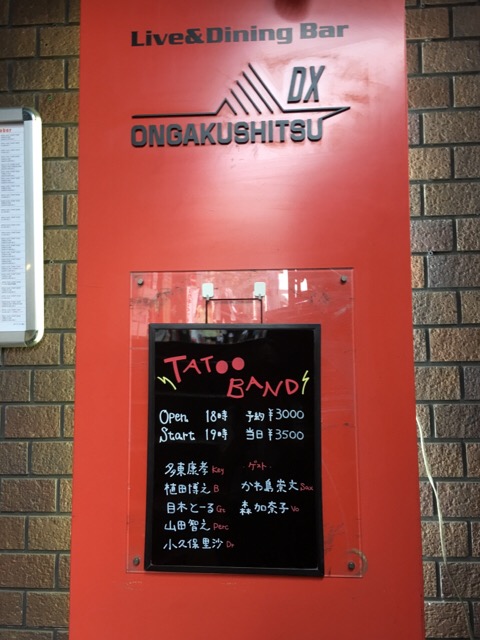 Live&Dining Bar
DX
ONGAKUSHITSU
TATOO
BAND
Open 18時 予約 ¥3000
Start 19時 当日 ¥3500
多東康孝 Key ・ゲスト・
植田博之 B かわ島崇文 Sax
目木とーる Gt 森 加奈子 Vo
山田智之 Perc
小久保里沙 Dr